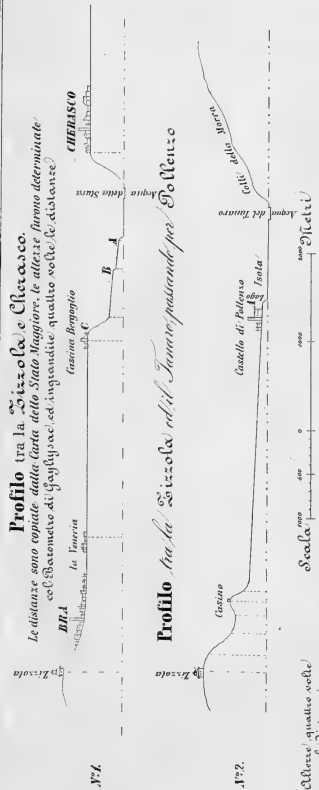 Profilo tra la Zizzola e Cherasco.
Le distanze sono copiate dalla Carta dello Stato Maggiore, le altezze furono determinate
col Barometro di Gaylysac, ed ingrandite quattro volte le distanze
Zizzola
BRA
la Veneria
Cascina Bergoglio
C
B
A
Acqua della Stura
CHERASCO
N.º 1.
Profilo tra la Zizzola ed il Tanaro, passando per Pollenzo
Zizzola
Casino
Castello di Pollenzo
A
Lago
Isola
Acqua del Tanaro
Colli della Morra
N.º 2.
Altezze quattro volte
Scala
1000
500
0
1000
2000 Metri